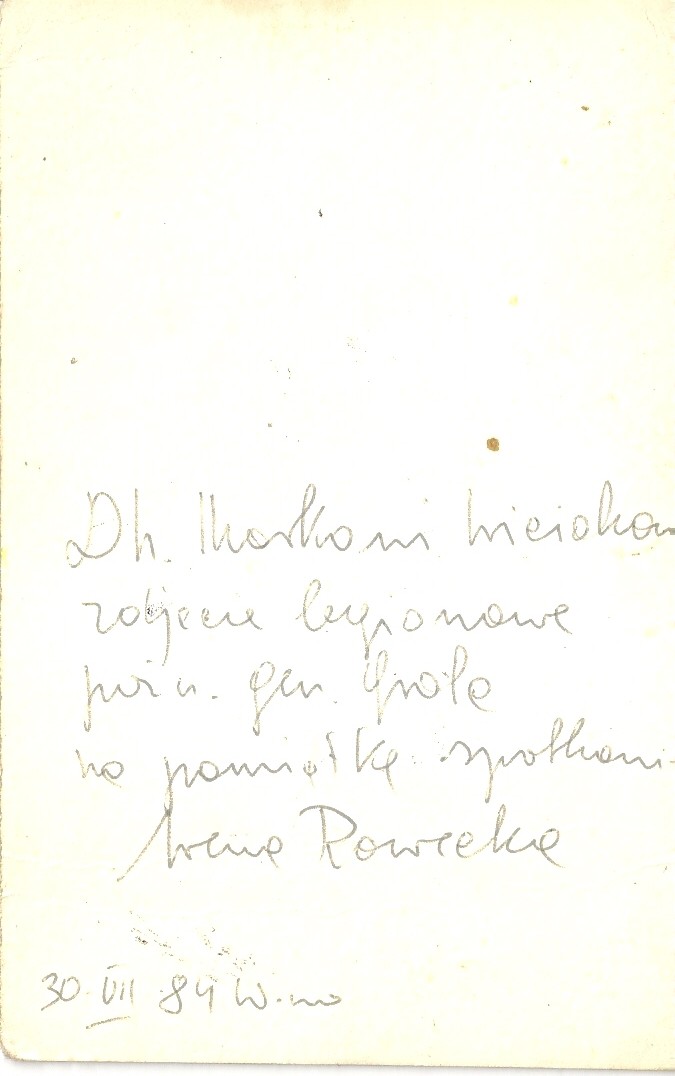 Dh. Markowi
zdjęcie legionowe
późn. gen. Grota
na pamiątkę spotkani
Irena Rowecka
30 VII 84 W-wa